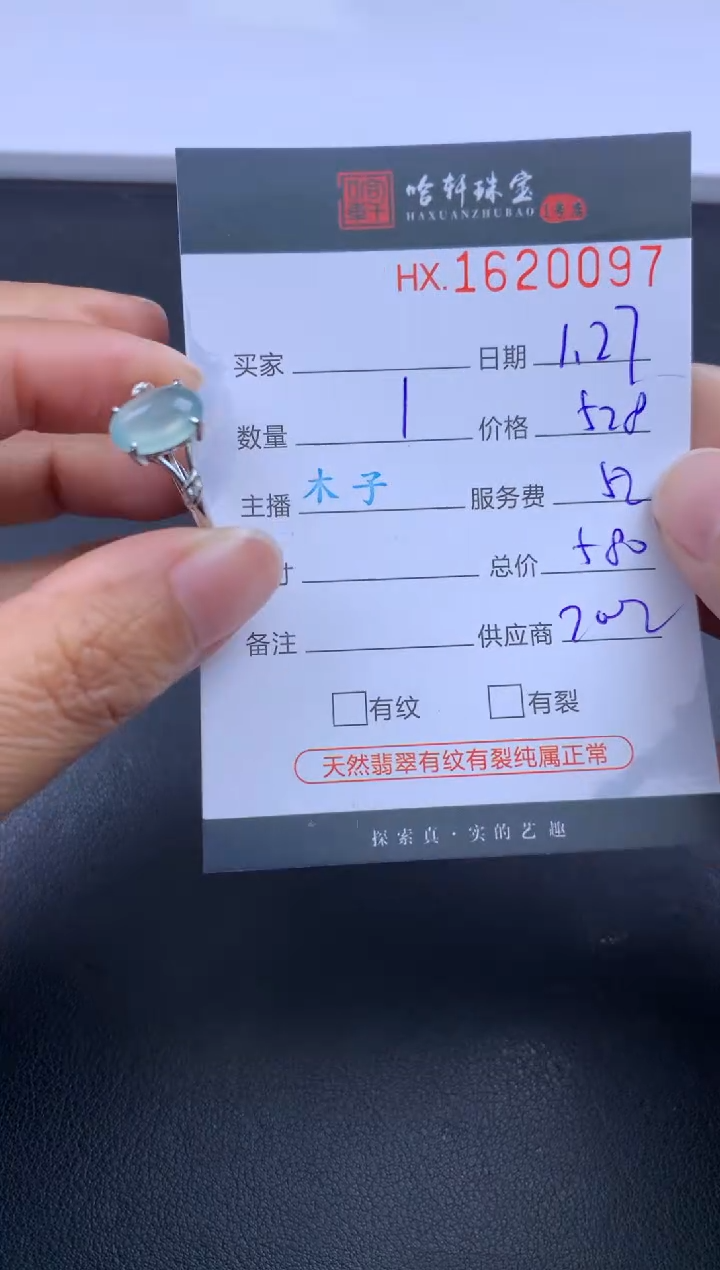 哈轩珠宝
HAXUANZHUBAO 1号店
HX.1620097
买家 日期 1.27
数量 1 价格 528
主播 木子 服务费 52
寸 总价 580
备注 供应商 202
有纹 有裂
天然翡翠有纹有裂纯属正常
探索真·实的艺趣